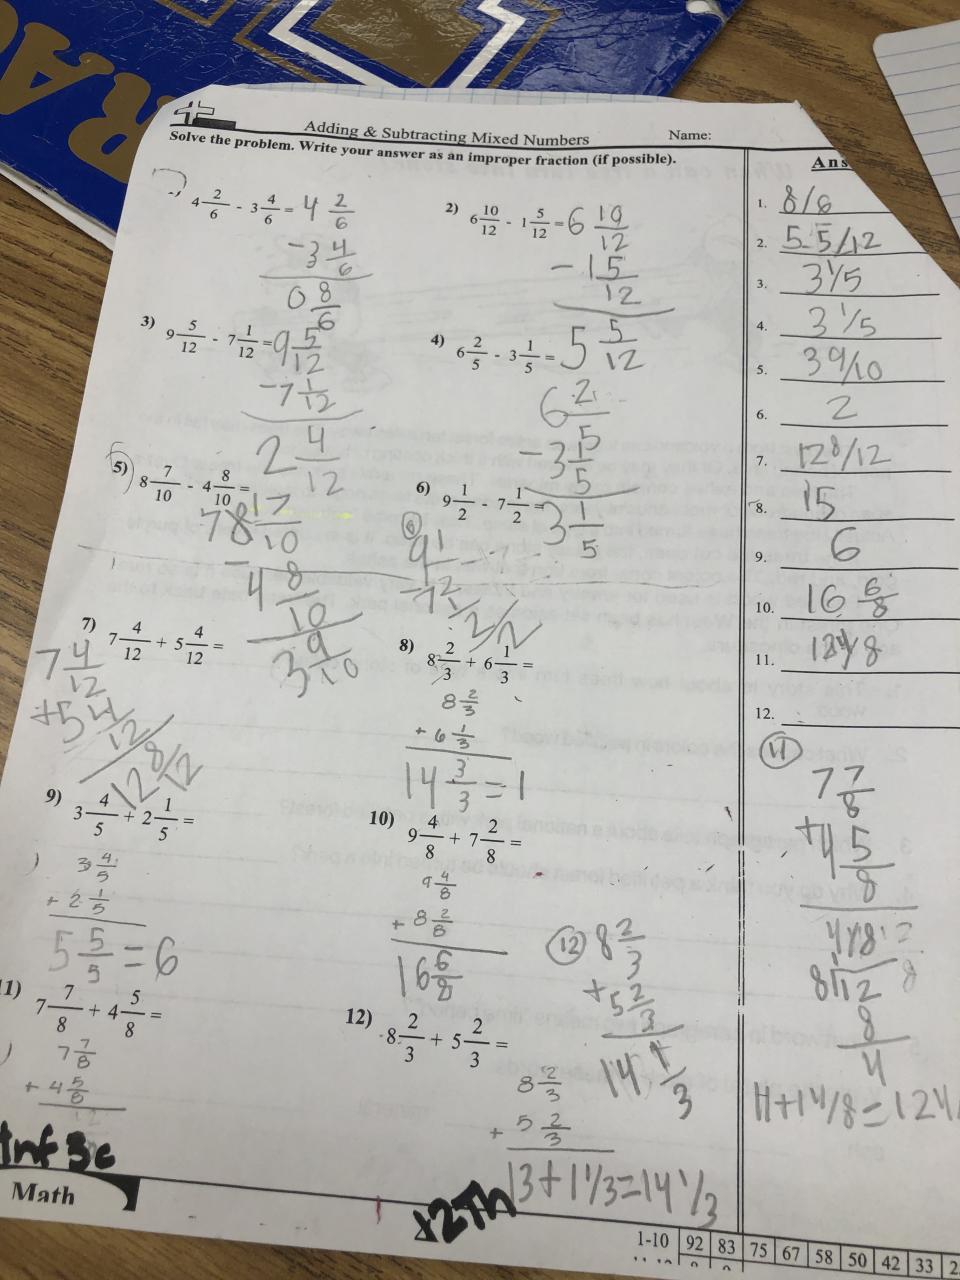 RA
Adding & Subtracting Mixed Numbers Name:
Solve the problem. Write your answer as an improper fraction (if possible).
Ans
4 2/6 - 3 4/6 = 4 2/6
- 3 4/6
0 8/6
2) 6 10/12 - 1 5/12 = 6 10/12
- 1 5/12
5 5/12
3) 9 5/12 - 7 1/12 = 9 5/12
- 7 1/12
2 4/12
4) 6 2/5 - 3 1/5 =
6 2
- 3 1/5
3 1/5
5) 8 7/10 - 4 8/10 =
7 8 17/10
- 4 8/10
3 9/10
6) 9 1/2 - 7 1/2 =
6
9 1
- 7 1/2
2/2
7) 7 4/12 + 5 4/12 =
7 4/12
+ 5 4/12
12 8/12
8) 8 2/3 + 6 1/3 =
8 2/3
+ 6 1/3
14 3/3 = 1
9) 3 4/5 + 2 1/5 =
3 4/5
+ 2 1/5
5 5/5 = 6
10) 9 4/8 + 7 2/8 =
9 4/8
+ 8 2/8
16 6/8
11) 7 7/8 + 4 5/8 =
7 7/8
+ 4 5/8
12) 8 2/3 + 5 2/3 =
8 2/3
+ 5 2/3
13 + 1 1/3 = 14 1/3
12 8 2/3
+ 5 2/3
14 1/3
1. 8/6
2. 5 5/12
3. 3 1/5
4. 3 1/5
5. 3 9/10
6. 2
7. 12 8/12
8. 15
9. 6
10. 16 6/8
11. 12 4/8
12.
11
7 7/8
+ 4 5/8
8 12
8
4
11 + 1 4/8 = 12 4/
Inf 3c
Math
x2Th
1-10 92 83 75 67 58 50 42 33 2